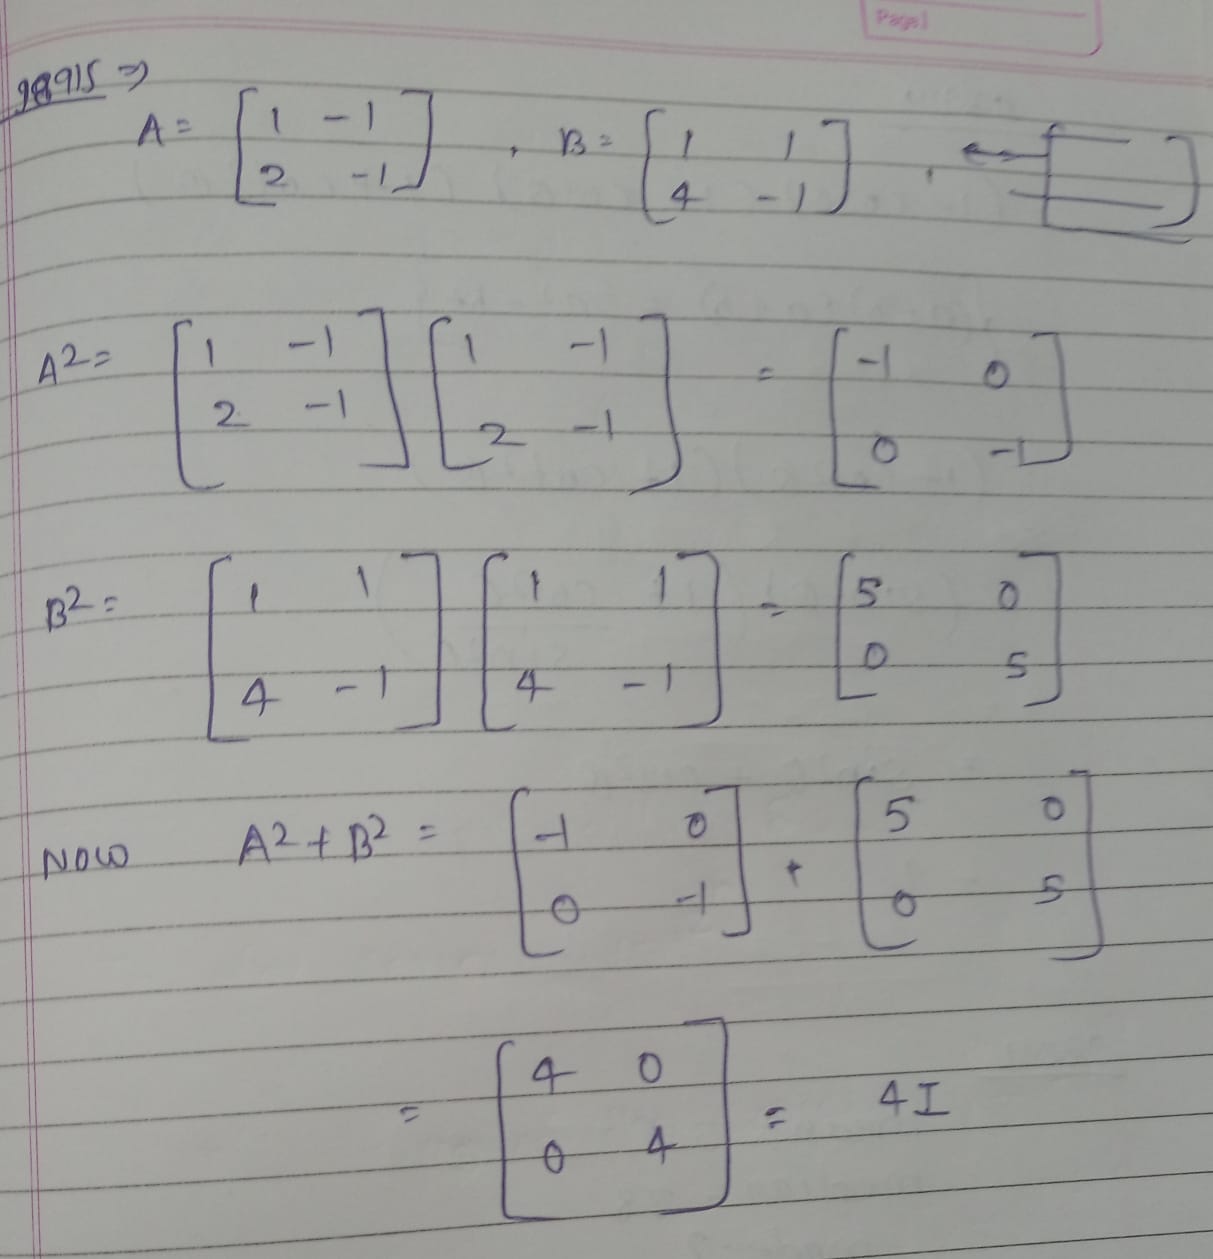 Page
18915 ⇒
A = [1 -1; 2 -1] , B = [1 1; 4 -1] ,
A² = [1 -1; 2 -1] [1 -1; 2 -1] = [-1 0; 0 -1]
B² = [1 1; 4 -1] [1 1; 4 -1] = [5 0; 0 5]
NOW A² + B² = [-1 0; 0 -1] + [5 0; 0 5]
= [4 0; 0 4] = 4I